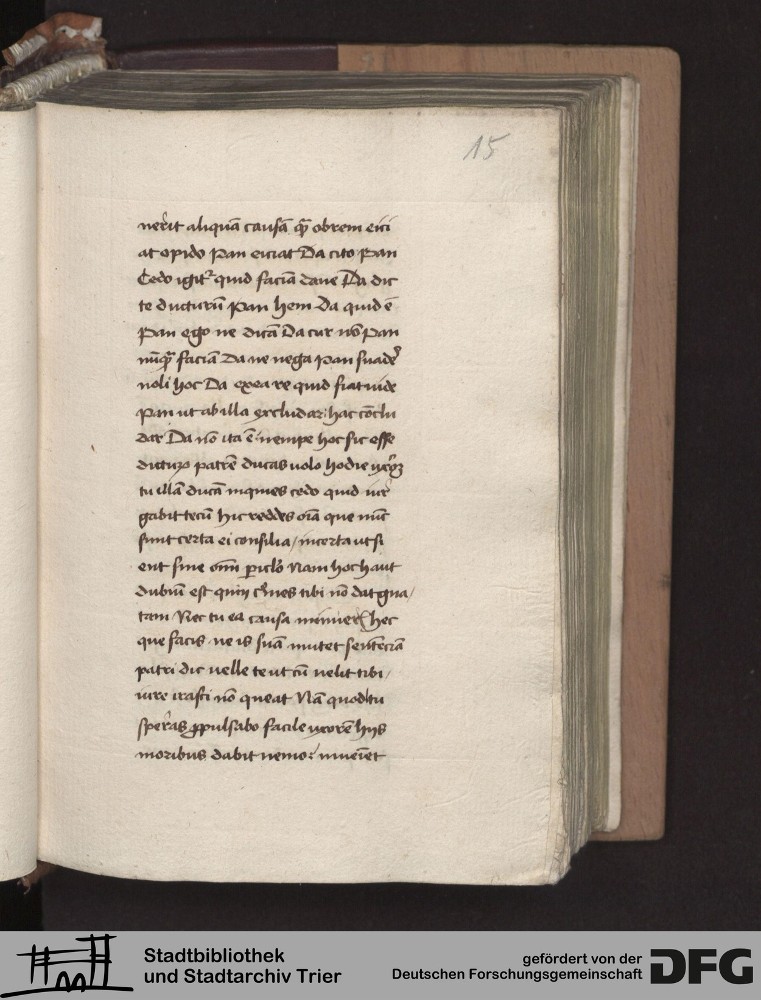 15
nerit aliquã causã q̃ obrem eici
at opido Pan eiciat Da cito Pan
Cedo igitʳ quid faciã dave Da dic
te ducturũ Pan hem Da quid ẽ
Pan ego ne dicã Da cur nõ Pan
nũq̃ faciã Da ne nega Pan suadeʳ
noli hoc Da ex ea re quid fiat vide
Pan ut ab illa excludar: hac cõclu
dar Da nõ ita ẽ: nempe hoc sic esse
dicturũ patrẽ ducas uolo hodie uxorẽ
tu illã ducã inquies cedo quid iurʳ
gabit tecũ hic reddes oĩa que nũc
sunt certa ei consilia / incerta ut si
ent sine om̃i pic̃lo Nam hoc haut
dubiũ est quin c̃mes tibi nõ dat gna /
tam / Nec tu ea causa minuerꝭ hec
que facis ne is suã mutet sentẽciã
patri dic uelle te ut cũ uelit tibi /
iure irasci nõ queat Nã quod tu
speras ꝓpulsabo facile uxorẽ hijs
moribus dabit nemo: inueĩet
Stadtbibliothek
und Stadtarchiv Trier
gefördert von der
Deutschen Forschungsgemeinschaft
DFG